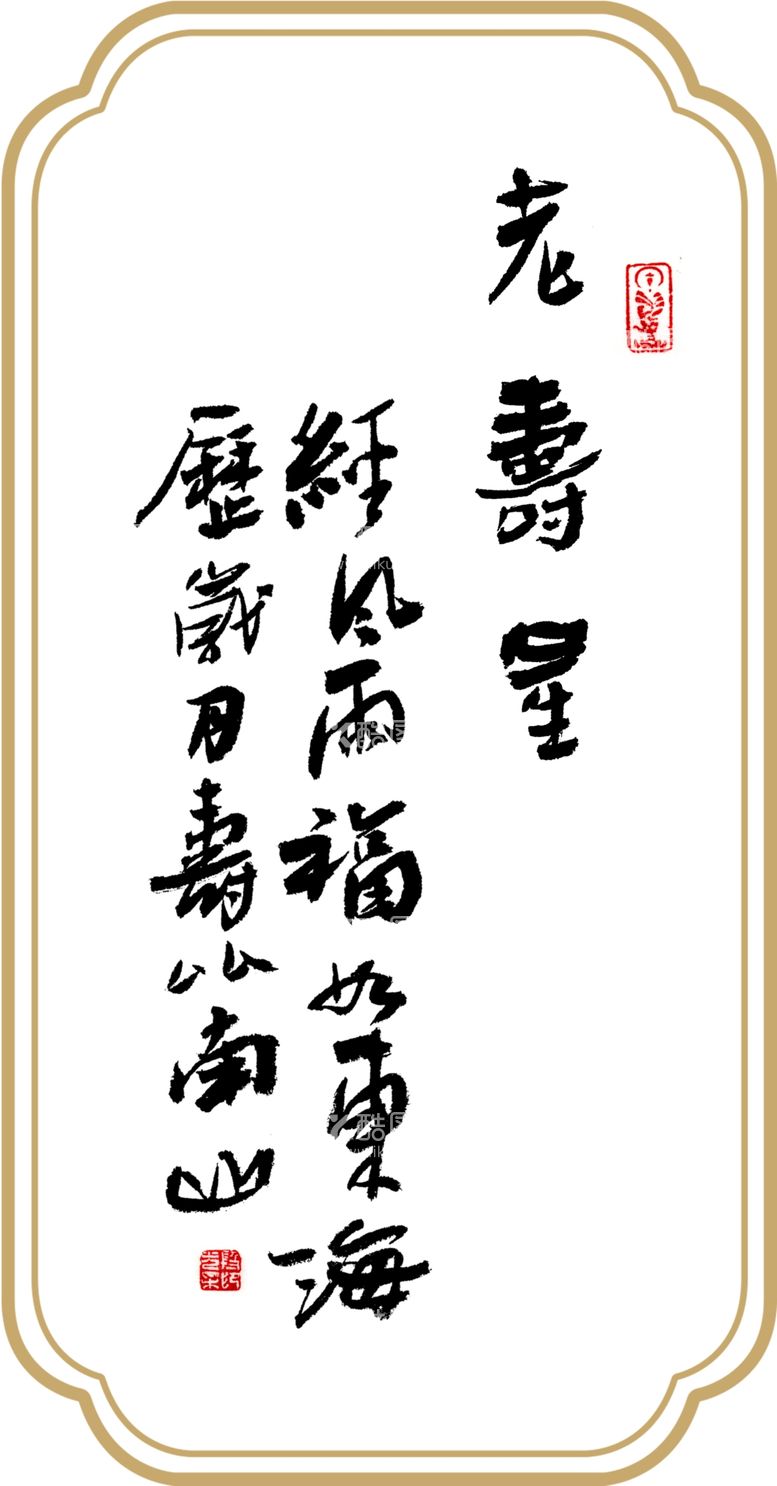 老壽星
經风雨福如東海
歷歲月壽比南山